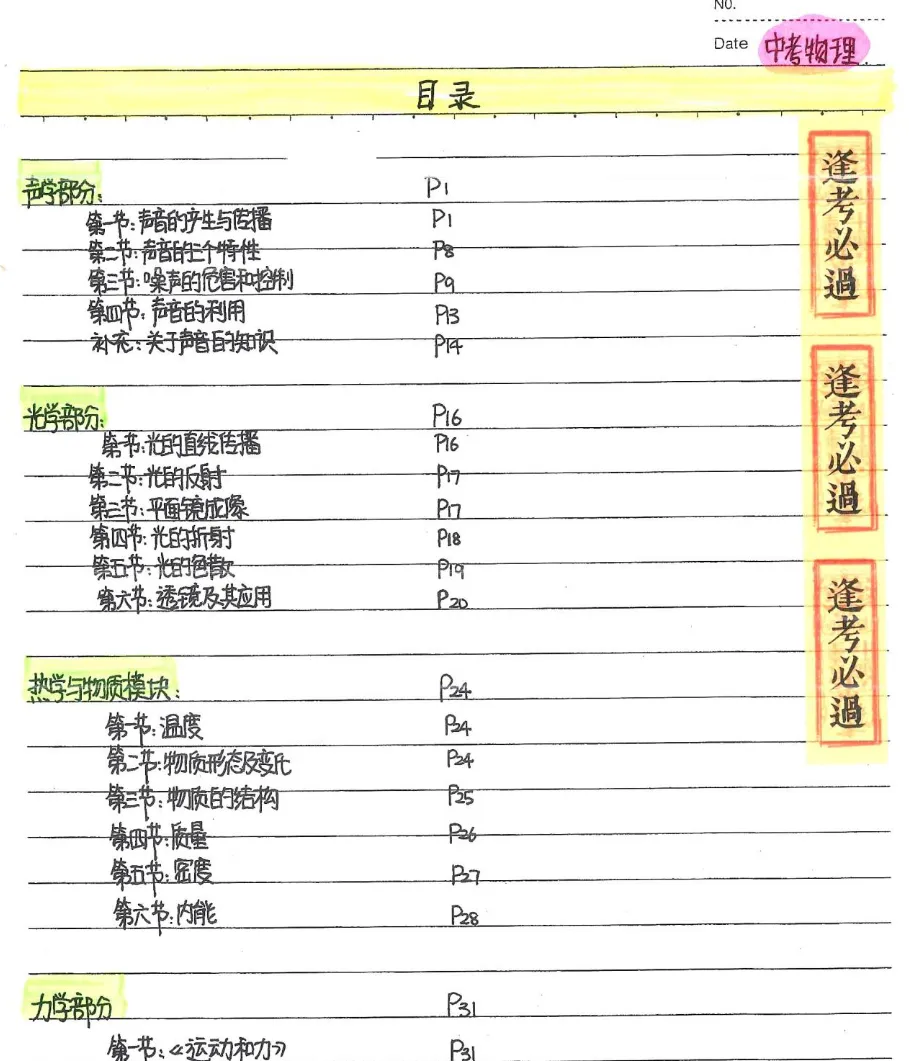 No.
Date 中考物理
目录
声学部分: P1
第一节:声音的产生与传播 P1
第二节:声音的三个特性 P8
第三节:噪声的危害和控制 P9
第四节:声音的利用 P13
补充:关于声音的知识 P14
光学部分: P16
第一节:光的直线传播 P16
第二节:光的反射 P17
第三节:平面镜成像 P17
第四节:光的折射 P18
第五节:光的色散 P19
第六节:透镜及其应用 P20
热学与物质模块: P24
第一节:温度 P24
第二节:物质形态及变化 P24
第三节:物质的结构 P25
第四节:质量 P26
第五节:密度 P27
第六节:内能 P28
力学部分 P31
第一节:《运动和力》 P31
逢考必過
逢考必過
逢考必過